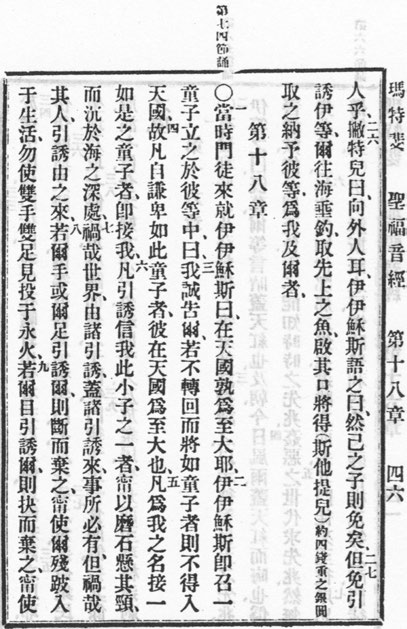 瑪特斐 聖福音經 第十八章 四六
二六 二七
人乎、撇特兒曰、向外人耳、伊伊穌斯語之曰、然己之子則免矣、但免引
誘伊等、爾往海垂釣、取先上之魚、啟其口、將得(斯他提兒)約四錢重之銀圓
取之納予彼等、爲我及爾者、
第十八章
第七四節誦
一 二
○當時門徒來就伊伊穌斯曰、在天國孰爲至大耶、伊伊穌斯卽召一
三
童子立之於彼等中、曰、我誠告爾、若不轉回而將如童子者、則不得入
四 五
天國、故凡自謙卑如此童子者、彼在天國爲至大也、凡爲我之名接一
六
如是之童子者、卽接我、凡引誘信我此小子之一者、甯以磨石懸其頸、
七
而沉於海之深處、禍哉世界、由諸引誘、蓋諸引誘來、事所必有、但禍哉
八
其人引誘由之來、若爾手或爾足引誘爾、則斷而棄之、甯使爾殘跛入
九
于生活、勿使雙手雙足見投于永火、若爾目引誘爾、則抉而棄之、甯使